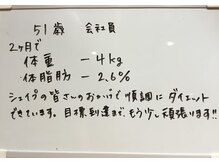 51歳　会社員
2ヶ月で
体重　－4kg
体脂肪　－2.6%
シェイプの皆さんのおかげで順調にダイエット
できています。目標到達まで、もう少し頑張ります!!